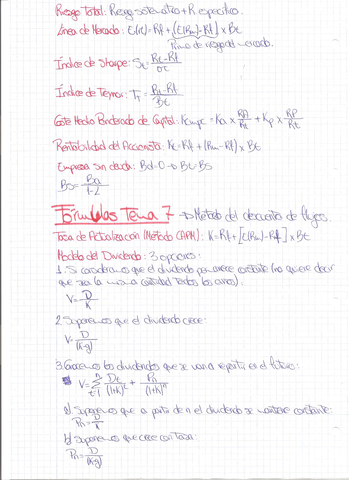 Riesgo Total: Riesgo sistemático + R. específico.
Línea de Mercado: E(rt) = Rf + (E(Rm) - Rf) x Bt
Prima de riesgo del mercado.
Índice de Sharpe: St = Rt - Rf / σt
Índice de Treynor: Ti = Rt - Rf / Bt
Coste Medio Ponderado de Capital: Kcmpc = Ka x RA / Rt + Kp x RP / Rt
Rentabilidad del Accionista: Ke = Rf + (Rm - Rf) x Bt
Empresa sin deuda: Bd = 0 → Bt = Bs
Bs = Ba / 1-L
Fórmulas Tema 7 → Método del descuento de flujos.
Tasa de Actualización (Método CAPM): K = Rf + [E(Rm) - Rf] x Bt
Modelo del Dividendo: 3 opciones:
1. Si consideramos que el dividendo permanece constante (no quiere decir
que sea la misma cantidad todos los años):
V = D / K
2. Suponemos que el dividendo crece:
V = D / (K-g)
3. Conocemos los dividendos que se van a repartir en el futuro:
V = Σ t=1 n Dt / (1+k)^t + Pn / (1+k)^n
a) Suponemos que a partir de n el dividendo se mantiene constante:
Pn = D / K
b) Suponemos que crece con tasa:
Pn = D / (K-g)